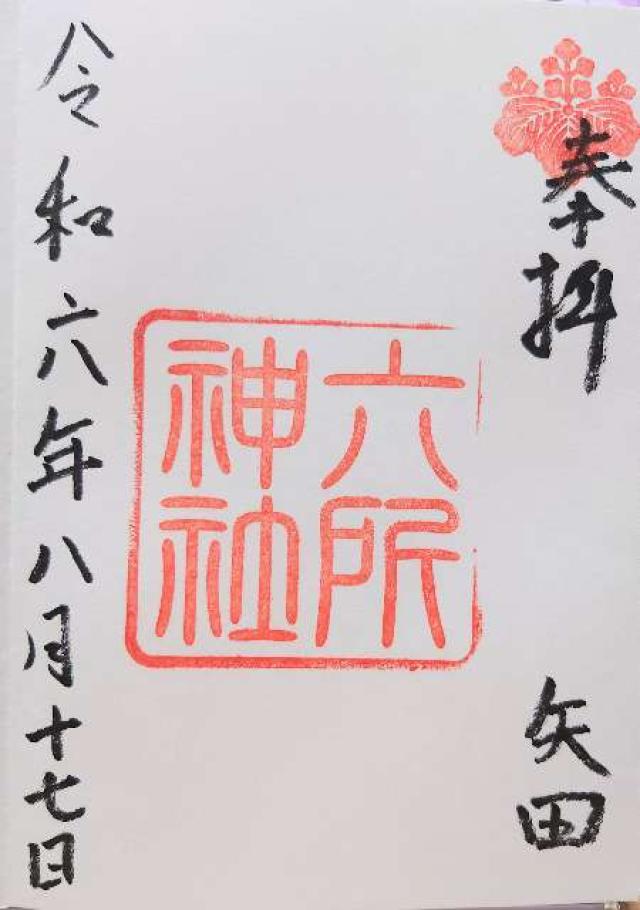 奉拝
矢田
六所
神社
令和六年八月十七日